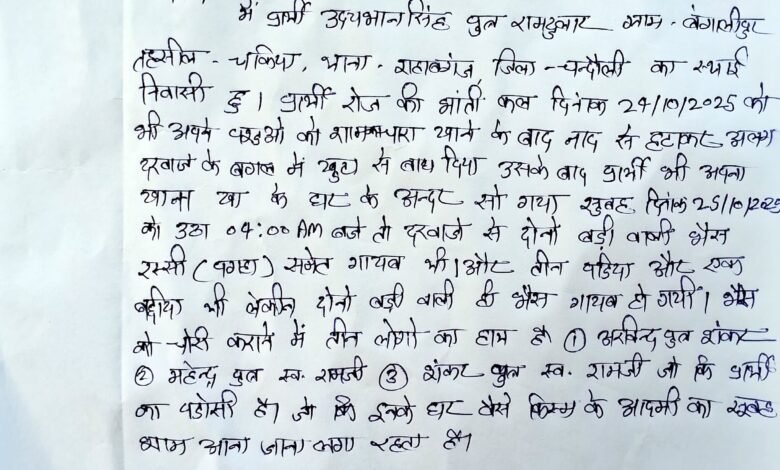 मैं प्रार्थी उदयभान सिंह पुत्र रामदुलार ग्राम - बंगालीपुर
तहसील - चकिया, थाना - शहाबगंज, जिला - चन्दौली का स्थाई
निवासी हु । प्रार्थी रोज की भांती कल दिनांक 24/10/2025 को
भी अपने पशुओ को शाम चारा खाने के बाद नाद से हटाकर अलग
दरवाजे के बगल में खुटा से बाध दिया उसके बाद प्रार्थी भी अपना
खाना खा के घर के अन्दर सो गया सुबह दिनांक 25/10/2025
को उठा 04:00 AM बजे तो दरवाजे से दोनो बड़ी वाली भैस
रस्सी (पगहा) समेत गायब थी । और तीन पडिया और एक
बछीया थी लेकीन दोनो बड़ी वाली ही भैस गायब हो गयी । भैस
को चोरी कराने में तीन लोगो का हाथ है ① अरविन्द पुत्र शंकर
② महेन्द्र पुत्र स्व. रामजी ③ शंकर पुत्र स्व. रामजी जो कि प्रार्थी
का पडोसी है। जो कि इनके घर वैसे किस्म के आदमी का सुबह
शाम आना जाना लगा रहता है।